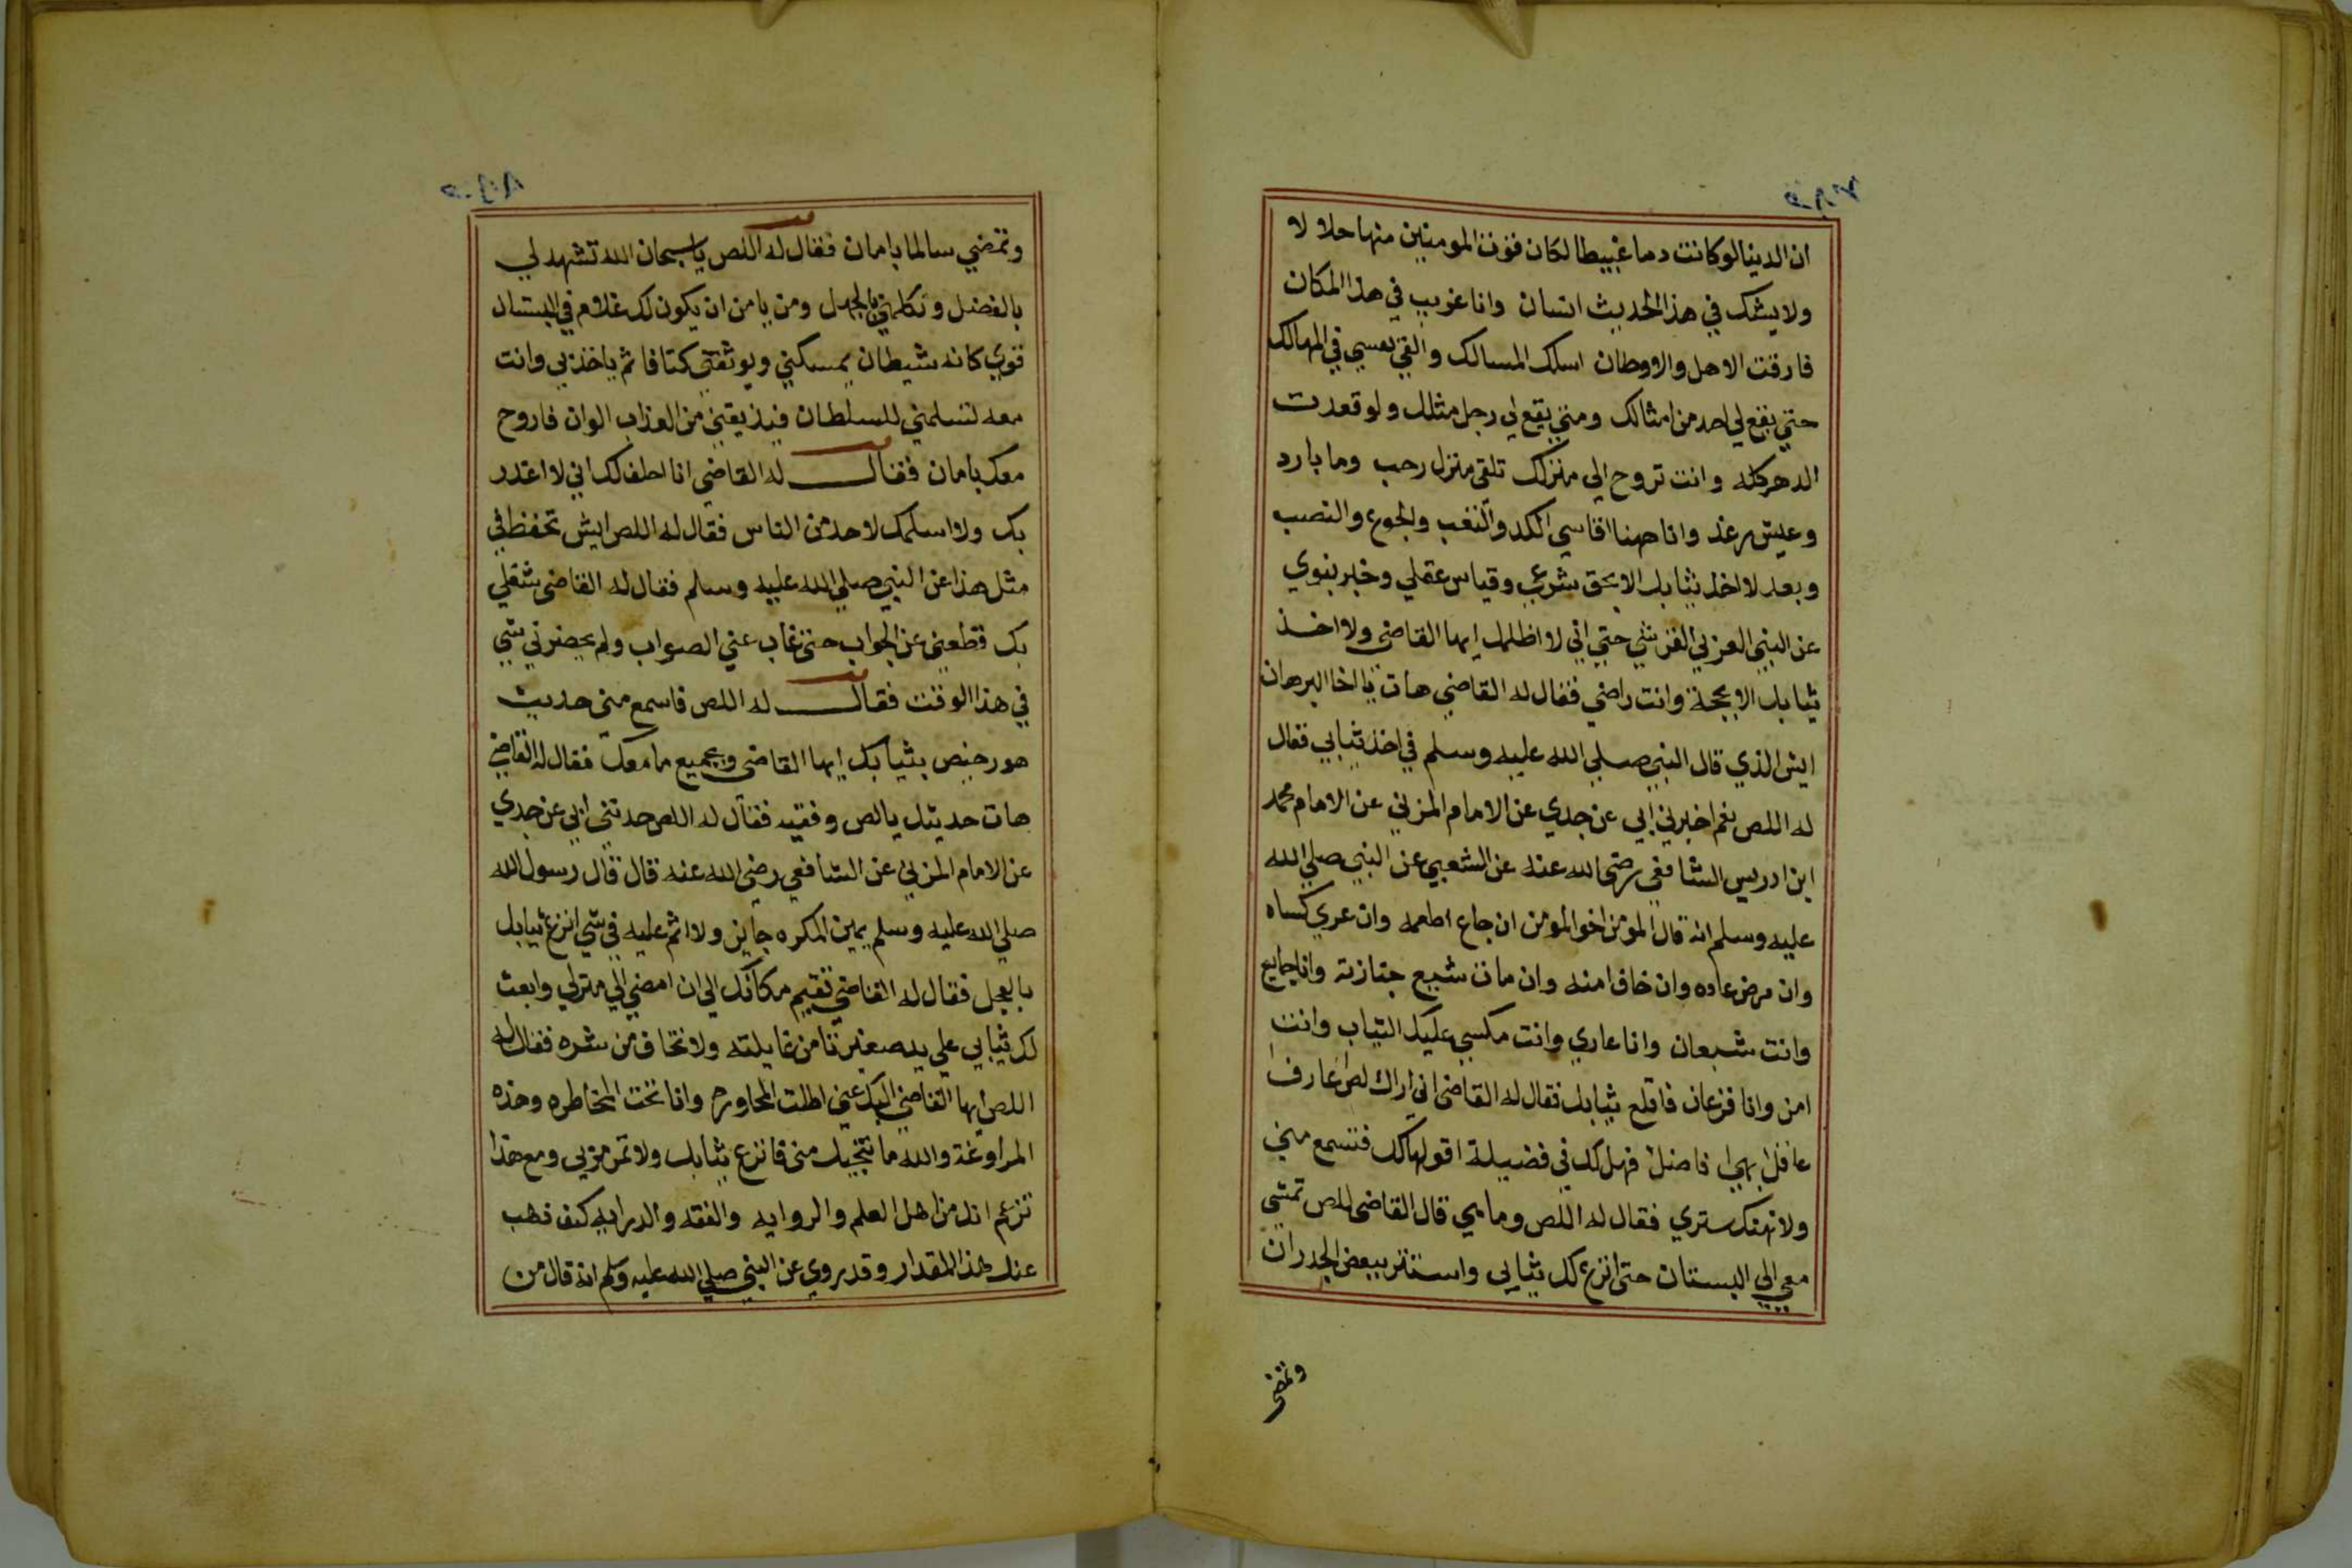 ان الدنيا لو كانت دما غبيطا لكان قوت المومنين منها حلا لا
ولا يشك في هذا الحديث انسان وانا غريب في هذا المكان
فارقت الاهل والاوطان اسلك المسالك والقي نفسي في المهالك
حتي يقع لي احد من امثالك ومتي يقع لي رجل مثلك ولو قعدت
الدهر كله وانت تروح الي منزلك تلقي منزل رحب وما بارد
وعيش رغد وانا هنا اقاسي الكد والتعب والجوع والنصب
وبعد لا اخذ ثيابك الا بحق شرعي وقياس عقلي وخبر نبوي
عن النبي العربي القرشي حتي اني لا اظلمك ايها القاضي ولا اخذ
ثيابك الا بحجة وانت راضي فقال له القاضي هات يا اخا البرهان
ايش الذي قال النبي صلي الله عليه وسلم في اخذ ثيابي فقال
له اللص نعم اخبرني ابي عن جدي عن الامام المزني عن الامام محمد
ابن ادريس الشافعي رضي الله عنه عن الشعبي عن النبي صلي الله
عليه وسلم انه قال المومن اخو المومن ان جاع اطعمه وان عري كساه
وان مرض عاده وان خاف امنه وان مات شيع جنازته وانا جايع
وانت شبعان وانا عاري وانت مكسي عليك الثياب وانت
امن وانا فزعان فاقلع ثيابك فقال له القاضي اني اراك لصا عارفا
عاقلا بهيا فاضلا فهل لك في فضيلة اقولها لك فتسمع مني
ولا تهتك ستري فقال له اللص وما هي قال القاضي للص تمشي
معي الي البستان حتي انزع لك ثيابي واستتر ببعض الجدران
وتمضي
وتمضي سالما بامان فقال له اللص يا سبحان الله تشهد لي
بالفضل وتكلمني بالجهل ومن يامن ان يكون لك غلام في البستان
قوي كانه شيطان يمسكني ويوثقني كتافا ثم ياخذني وانت
معه لتسلمني للسلطان فيذيقني من العذاب الوان فاروح
معك بامان فقال له القاضي انا احلف لك اني لا اغدر
بك ولا اسلمك لاحد من الناس فقال له اللص ايش تحفظ في
مثل هذا عن النبي صلي الله عليه وسلم فقال له القاضي شغلي
بك قطعني عن الجواب حتي غاب عني الصواب ولم يحضرني شي
في هذا الوقت فقال له اللص فاسمع مني حديث
هو رخيص بثيابك ايها القاضي وبجميع ما معك فقال له القاضي
هات حديثك يا لص وفقيه فقال له اللص حدثني ابي عن جدي
عن الامام المزني عن الشافعي رضي الله عنه قال قال رسول الله
صلي الله عليه وسلم يمين المكره جايز ولا اثم عليه في شي انزع ثيابك
بالعجل فقال له القاضي تقيم مكانك الي ان امضي الي منزلي وابعث
لك ثيابي علي يد صغير تامن غايلته ولا تخاف من شره فقال له
اللص ايها القاضي اليك عني اطلت المحاوره وانا تحت المخاطره وهذه
المراوغة والله ما تنجيك مني فانزع ثيابك ولا تمر مزبي ومع هذا
تزعم انك من اهل العلم والروايه والفقه والدرايه كيف ذهب
عنك هذا المقدار وقد روي عن النبي صلي الله عليه وسلم انه قال من